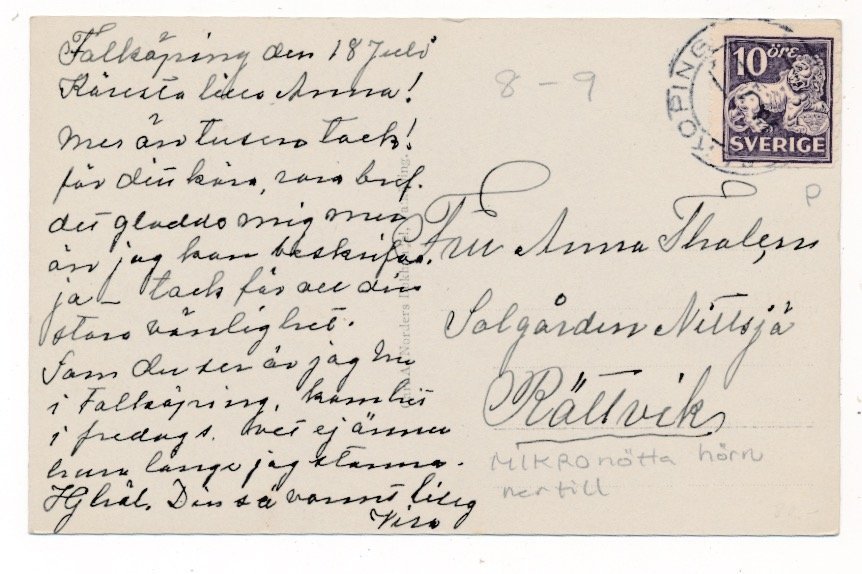 Falköping den 18 Juli
Käresta lilla Anna!
Mer än tusen tack!
för ditt kära, rara bref.
det gladde mig mer
än jag kan beskrifva.
ja – tack för all din
stora vänlighet.
Som du ser är jag nu
i Falköping, kom hit
i fredags. Vet ej ännu
huru länge jag stannar.
Hj. häls. Din så varmt
8 – 9
KÖPING
10 ÖRE
SVERIGE
P
Fru Anna Thalén
Solgården Nittsjö
Rättvik
MIKROnötta hörn
nertill